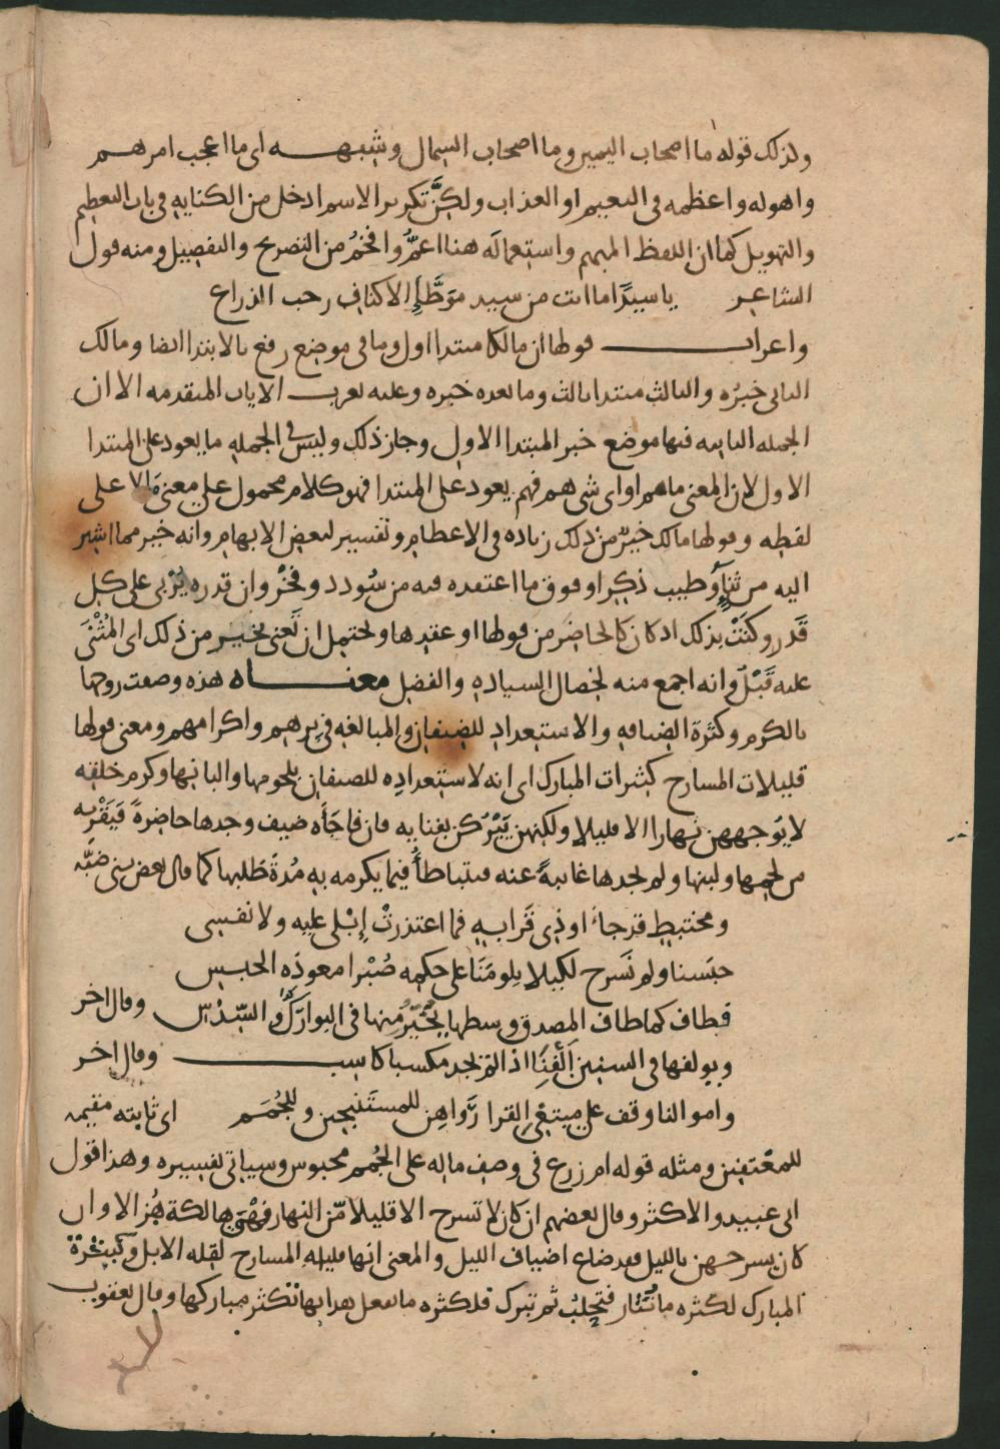 ولذلك قوله ما اصحاب اليمين وما اصحاب الشمال وشبهه اى ما اعجب امرهم
واهوله واعظمه فى النعيم او العذاب ولكنَّ تكرير الاسم ادخل من الكناية فى باب التعظيم
والتهويل كما ان اللفظ المبهم واستعماله هنا اعمُّ وافخمُ من التصريح والتفصيل ومنه قول
الشاعر يا سيدًا ما انت من سيد موَطَّإِ الاكنافِ رحب الذراع
واعراب قولها ان مالكا مبتدا اول وما فى موضع رفع بالابتدا ايضا ومالك
الثانى خبرُه والثالث مبتدا ثالث وما بعده خبره وعليه تعرب الايات المتقدمه الا ان
الجمله الثانيه فيها موضع خبر المبتدا الاول وجاز ذلك وليس فى الجمله ما يعود على المبتدا
الاول لان المعنى ما هم او اى شى هم فهم يعود على المبتدا فهو كلام محمول على معناه لا على
لفظه وقولها مالك خيرٌ من ذلك زياده فى الاعظام وتفسير لبعض الابهام وانه خير مما اشير
اليه من ثناءٍ وطيب ذكر او فوق ما اعتقده فيه من سُودد وفخْر وان قدره يُرْبى على كل
قَدر وكنَتْ بذلك اذ كان كالحاضر من قولها او عقدها ويحتمل ان تَعنى بخير من ذلك اى المُثْنَى
عليه قَبْلُ وانه اجمع منه لخصال السياده والفضل معناه هذه وصفت زوجها
بالكرم وكثرة الضيافه والاستعداد للضيفان والمبالغه فى برهم واكرامهم ومعنى قولها
قليلات المسارح كثيرات المبارك اى انه لاستعداده للضيفان بلحومها والبانها وكرم خلقه
لا يوجههن نهارا الا قليلا ولكنهن يَبْرُكن بفنايه فان فاجأه ضيف وجدها حاضرةً فيَقْريه
من لحمها ولبنها ولم يجدها غايبةً عنه فيتباطأُ فيما يكرمه به مُدةَ طَلبها كما قال بعض بنى ضبَّه
ومختبطٍ قد جاءَ او ذى قَرابه فما اعتذرتْ إِبْلى عليه ولا نفسى
حبَسنا ولم نَسرح لكيلا يلومَنَا على حكمه صُبْرا معوذَه الحبس
فطاف كما طاف المصدق وسطها يُخَيّرُ منها فى البوازلِ والسُّدْسِ وقال اخر
ويولفها فى السنين اذا لم يجد مكسبا كاسب وقال اخر
واموالنا وقف على مبتغى القرا رَواهِن للمستَنبحين وللجُمَم اى ثابته مقيمه
للمعتفين ومثله قوله ام زرع فى وصف ماله على الجُمم محبوس وسياتى تفسيره وهذا قول
ابى عبيد والاكثر وقال بعضهم ان كان لا تسرح الا قليلا مّن النهار فهْىَ هالكة هُزالا وان
كان يسرحهن بالليل فقد ضاع اضياف الليل والمعنى انها قليله المسارح لقله الابل وكثيرة
المبارك لكثره ما تُثار فتحلبُ ثم تبرك فلكثره ما يفعل هذا بها تكثر مباركها وقال يعقوب